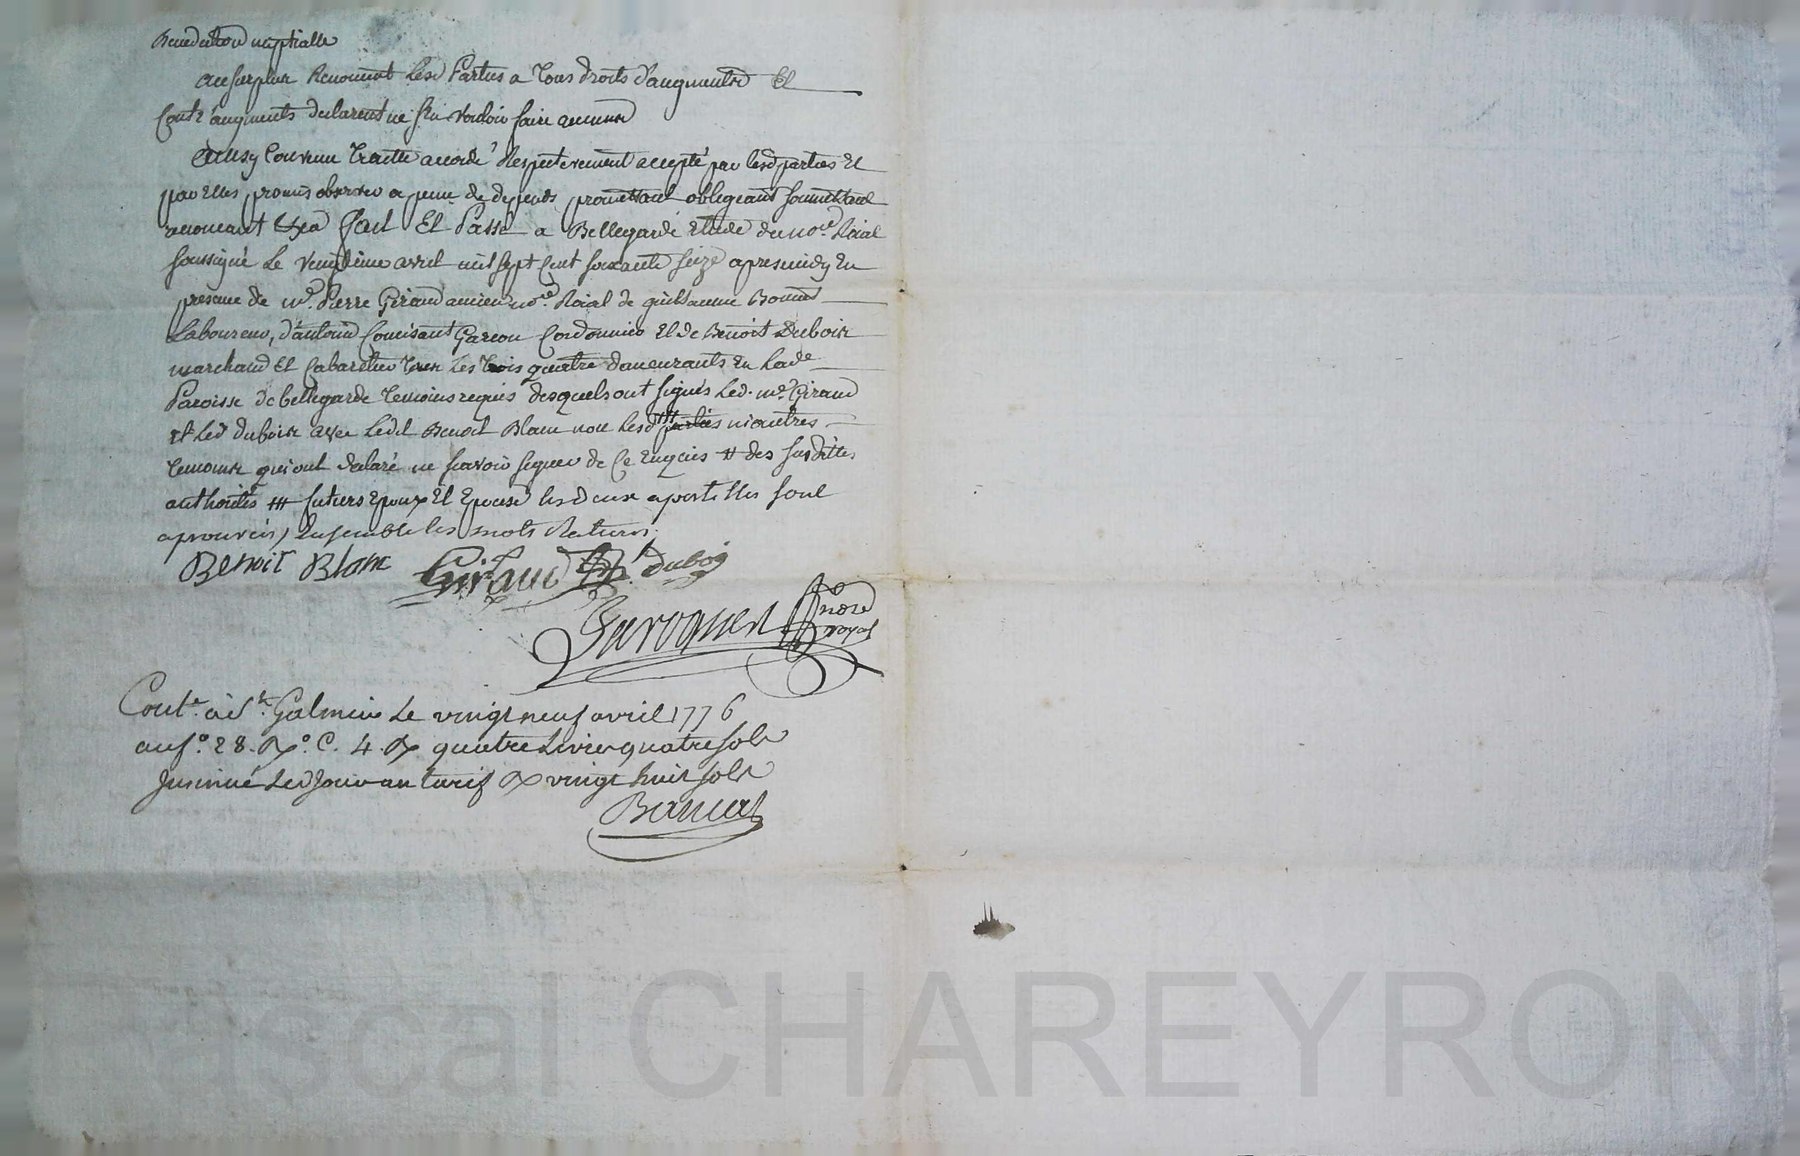 Benediction nuptialle
au surplus Renoncent lesd Parties a Tous droits d'augments Et
Contr'augments declarent ne s'en Vouloir faire aucuns
Ainsy Convenu Traitté accordé Respectivement accepté par lesd parties Et
par Elles promis observer a peine de depends promettant obligeant soumettant
renoncant &ca Fait Et Passé a Bellegarde Etude du nore. Roial
soussigné Le Vingtieme avril mil sept Cent soixante seize apres midy En
presence de me. Pierre Giraud ancien nore. Roial de guillaume
Laboureur, d'antoine garcon Cordonnier Et de Benoit Dubois
marchand Et Cabaretier Tous Les trois quatre demeurants En Lade
Paroisse de bellegarde Temoins requis desquels ont signés Led. me. Giraud
et Led dubois avec Ledit Benoit Blanc non Lesd ⧻ parties ni autres
temoins qui ont declaré ne scavoir signer de Ce Enquis # des susdittes
authorités ⧻ futurs Epoux Et Epouse les deux apostilles sont
aprouvées, Ensemble les mots
Benoit Blanc Giraud dubois
nore royal
Contle. à St. Galmier Le vingt neuf avril 1776
au fo. 28. Ro. C. 4. R quatre Livres quatre sols
Insinué Led Jour au tarif R vingt huit sols
Pascal CHAREYRON